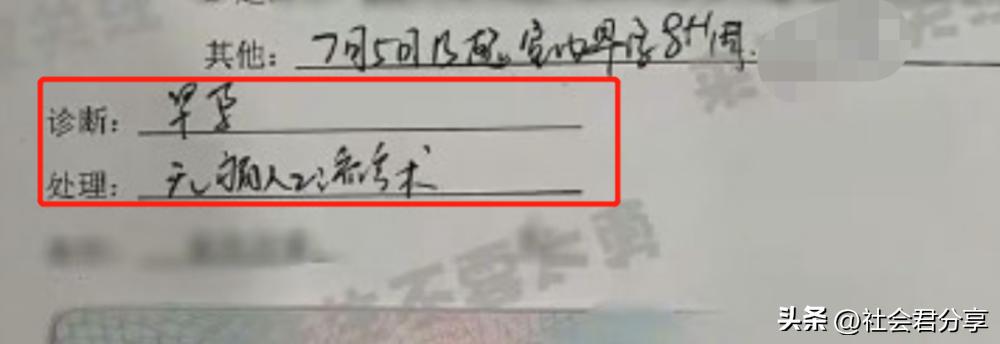 其他：7月5日B超：宫内早孕8+周.
诊断：早孕
处理：无痛人工流产术
头条 @社会君分享